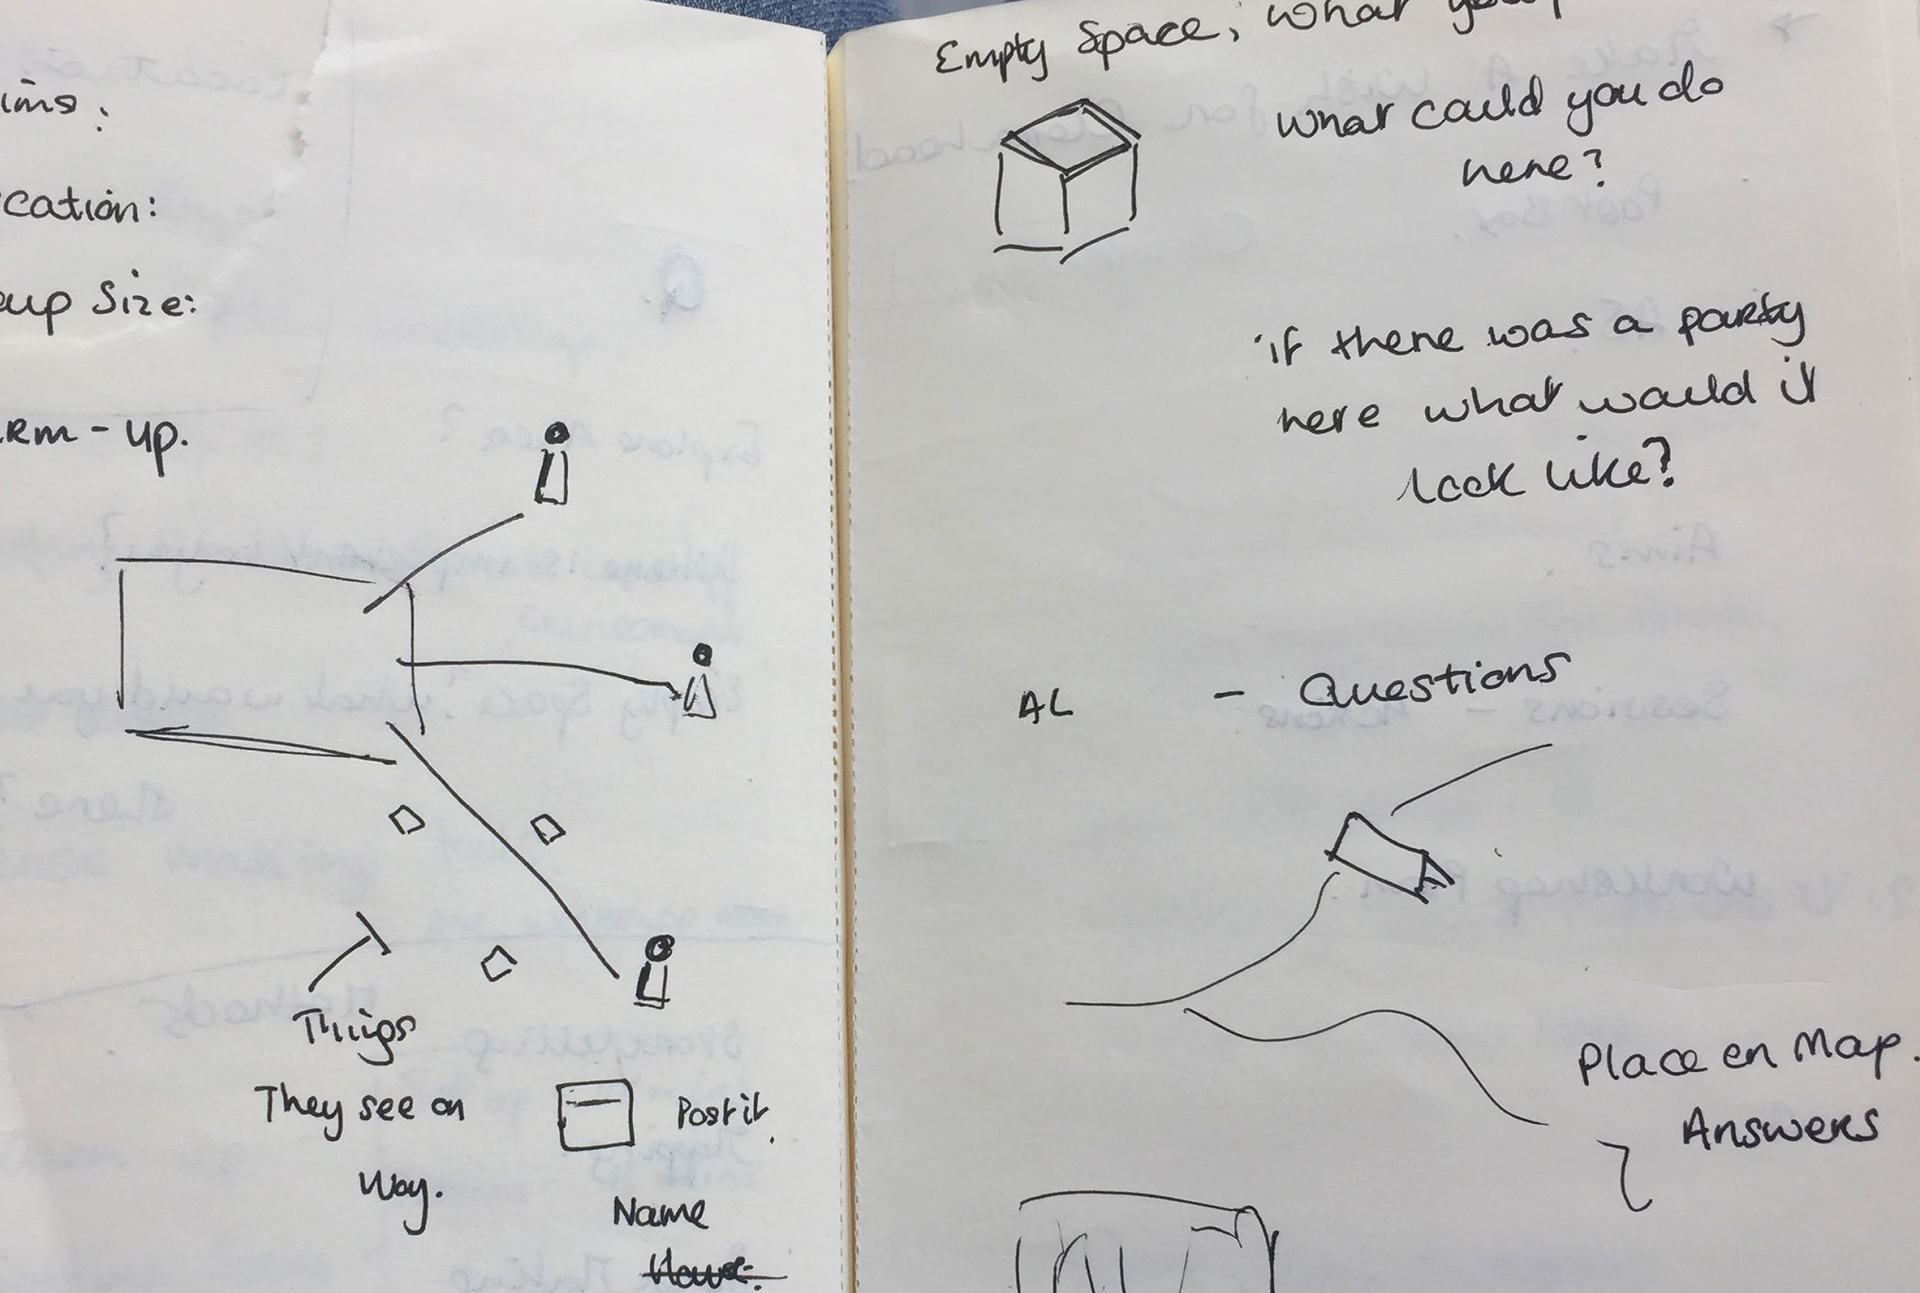 ims:
cation:
oup Size:
arm-up.
Things
They see on
Way.
Post it.
Name
Empty Space, What
What could you do
here?
if there was a party
here what would it
look like?
AL - Questions
Place on Map.
Answers